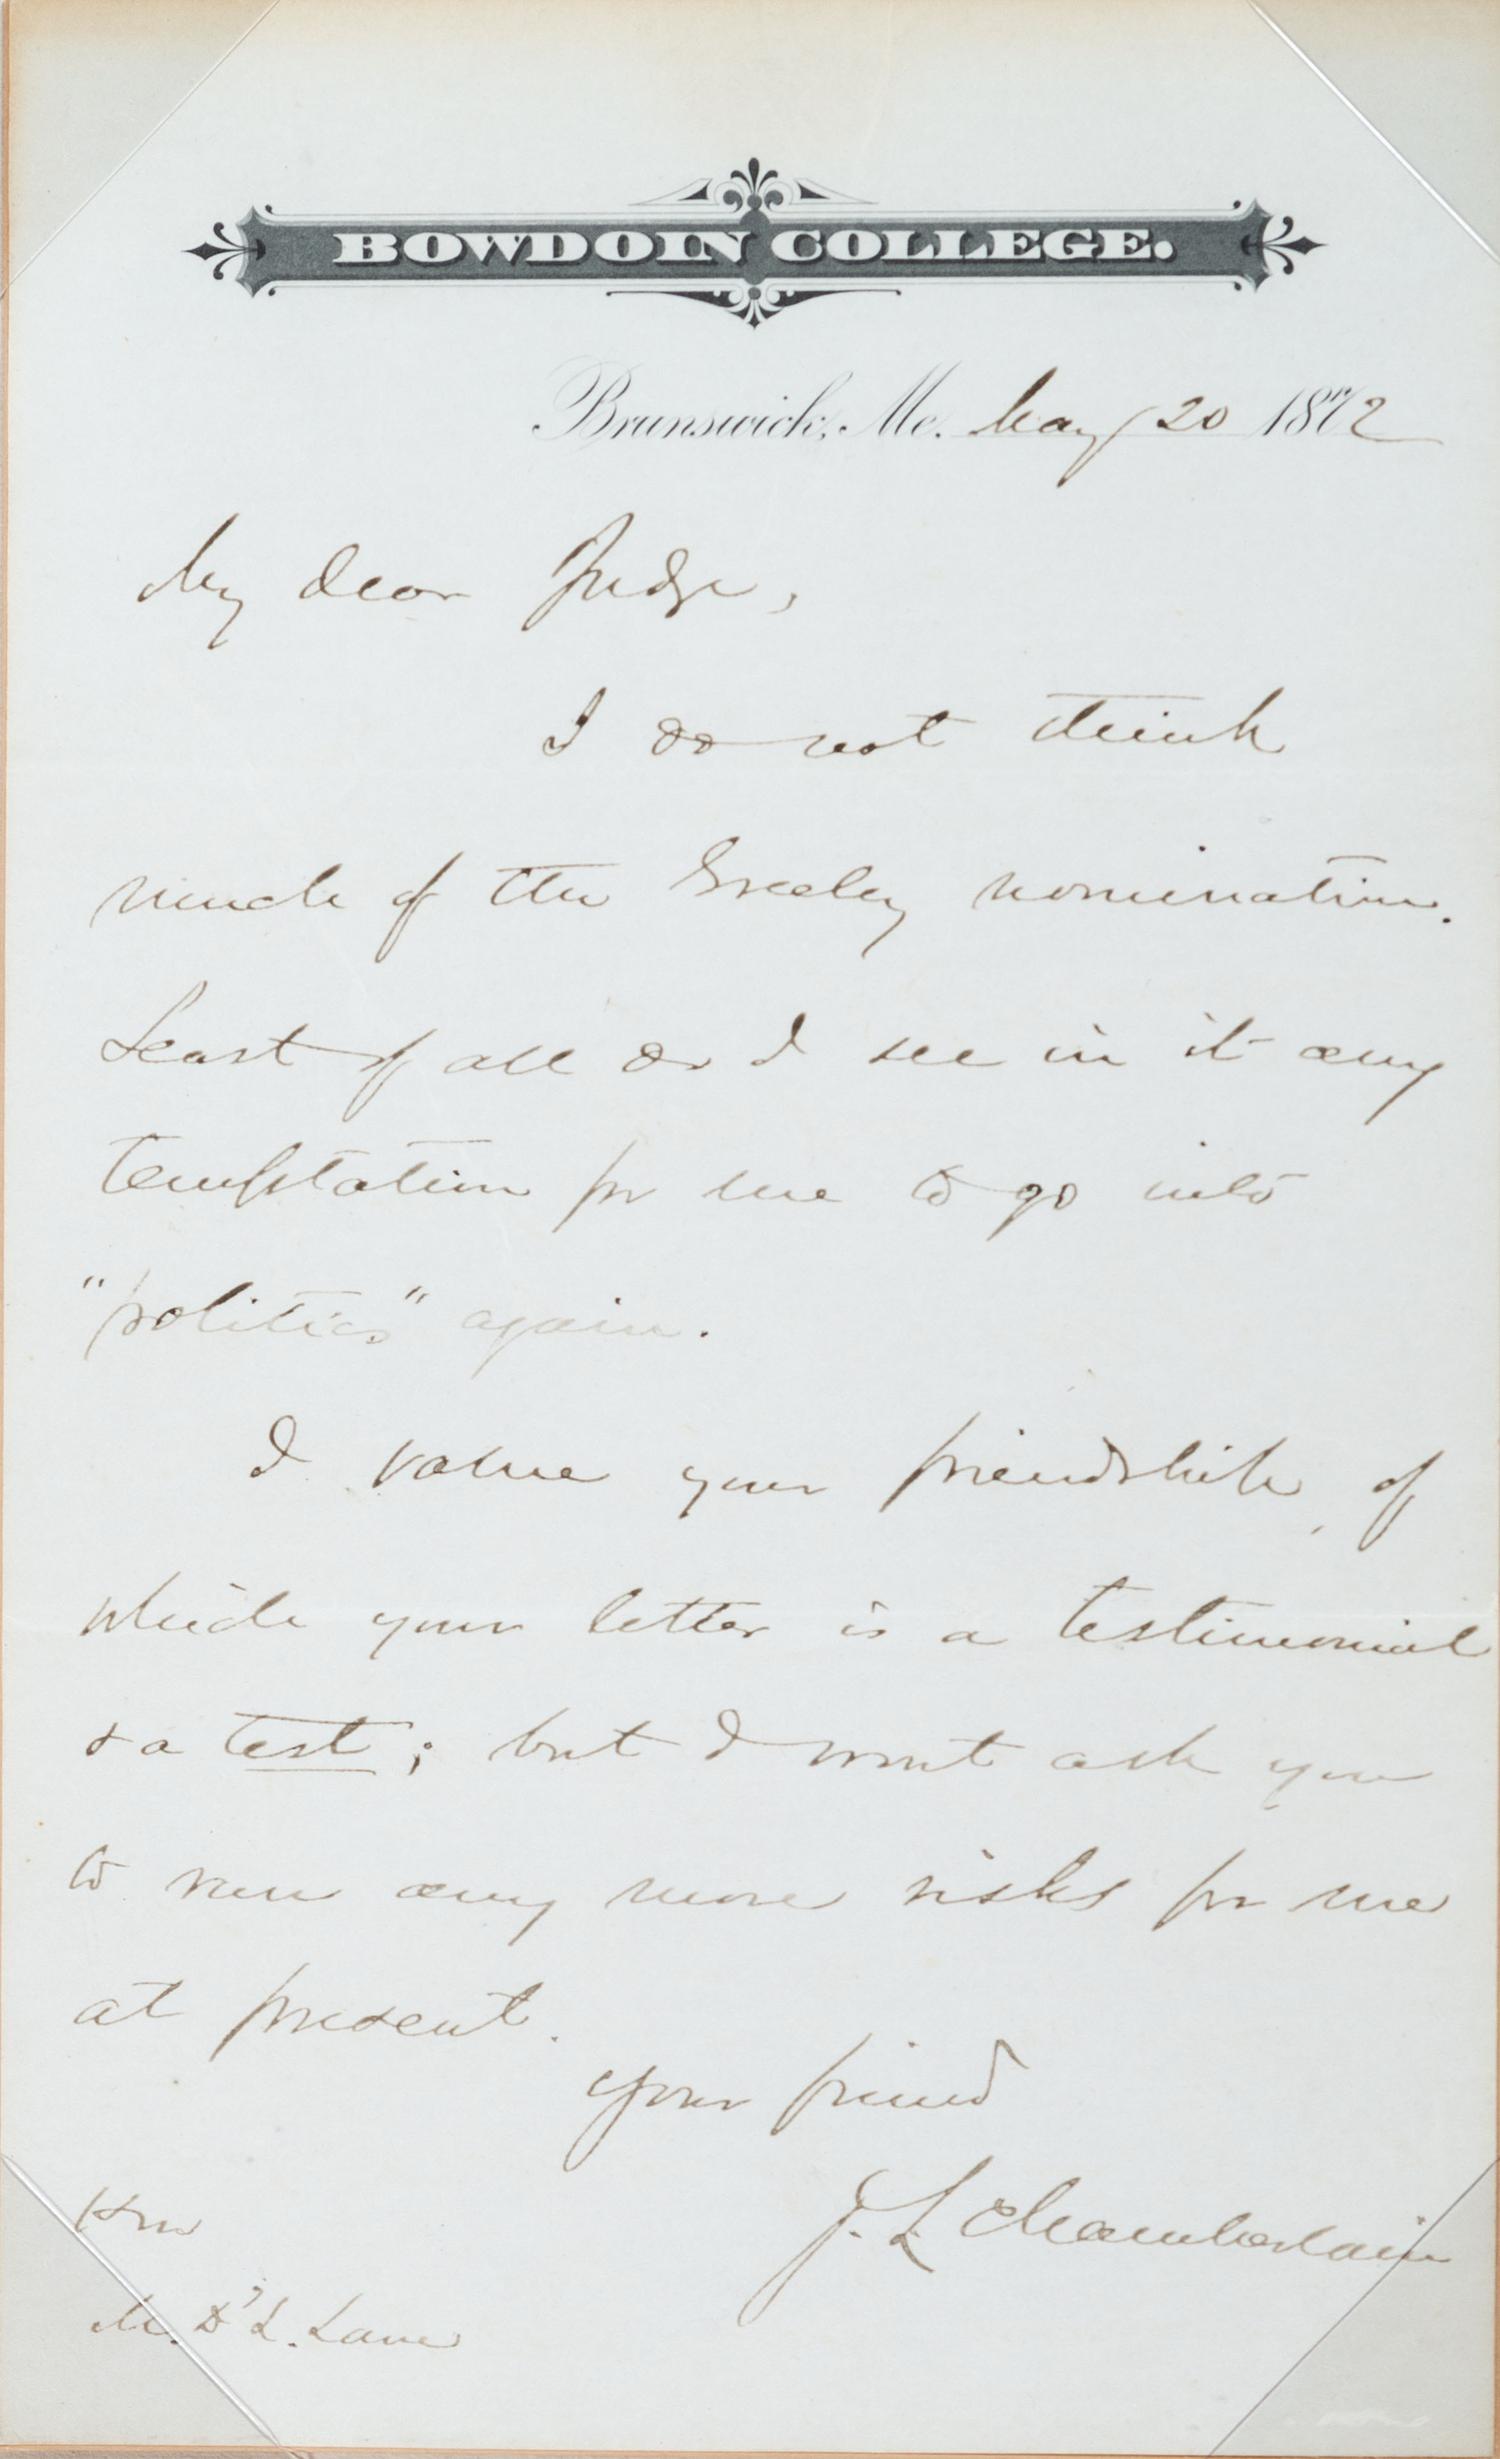 BOWDOIN COLLEGE.
Brunswick, Me. May 20 1872
My dear Judge,
I do not think
much of the Greeley nomination.
Least of all do I see in it any
temptation for me to go into
"politics" again.
I value your friendship, of
which your letter is a testimonial
& a test; but I wont ask you
to run any more risks for me
at present.
Your friend
J. L. Chamberlain
Hon
M. D' L. Lane